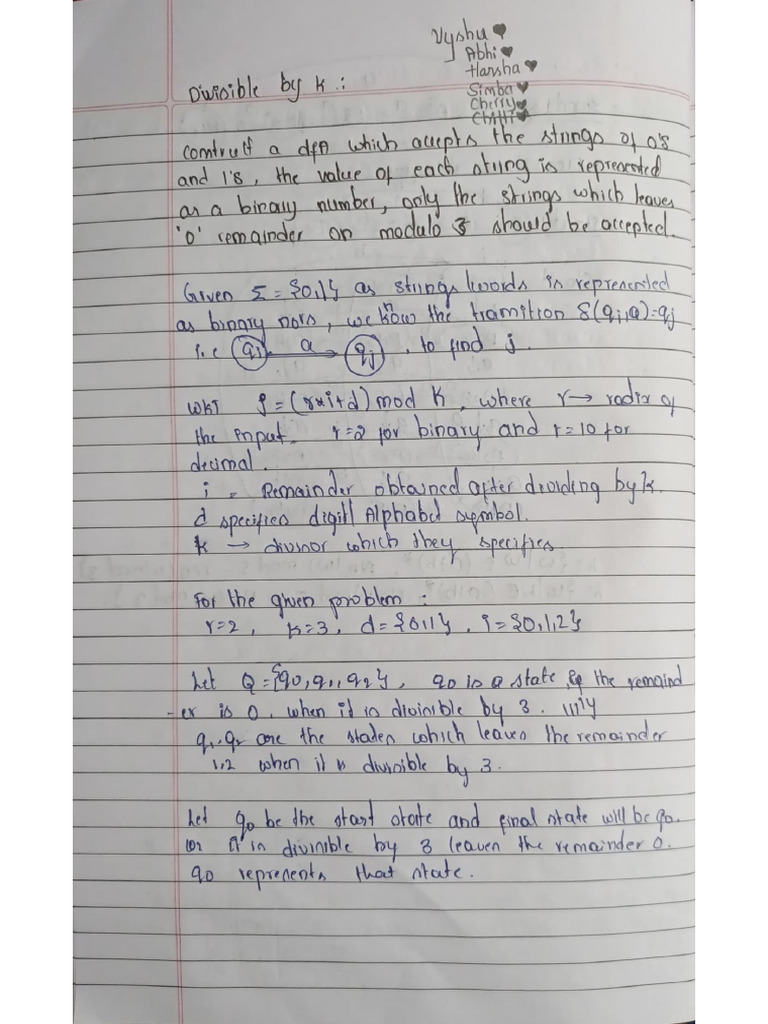 Vyshu
Abhi
Harsha
Simba
Cherry
Divisible by k :
Construct a dfA which accepts the strings of 0's
and 1's, the value of each string is represented
as a binary number, only the strings which leaves
'0' remainder on modulo 3 should be accepted.
Given Σ = {0,1} as strings/words is represented
as binary no's, we know the transition δ(qi,a)=qj
i.e qi a qj , to find j.
WKT j=(r*i+d) mod K, where r → radix of
the input. r=2 for binary and r=10 for
decimal.
i = Remainder obtained after dividing by k.
d specifies digit Alphabet symbol.
k → divisor which they specifies
For the given problem :
r=2, k=3, d={0,1}, i={0,1,2}
Let Q={q0,q1,q2}, q0 is a state, the remaind
-er is 0, when it is divisible by 3. |||ly
q1,q2 are the states which leaves the remainder
1,2 when it is divisible by 3.
Let q0 be the start state and final state will be q0.
it is divisible by 3 leaves the remainder 0.
q0 represents that state.